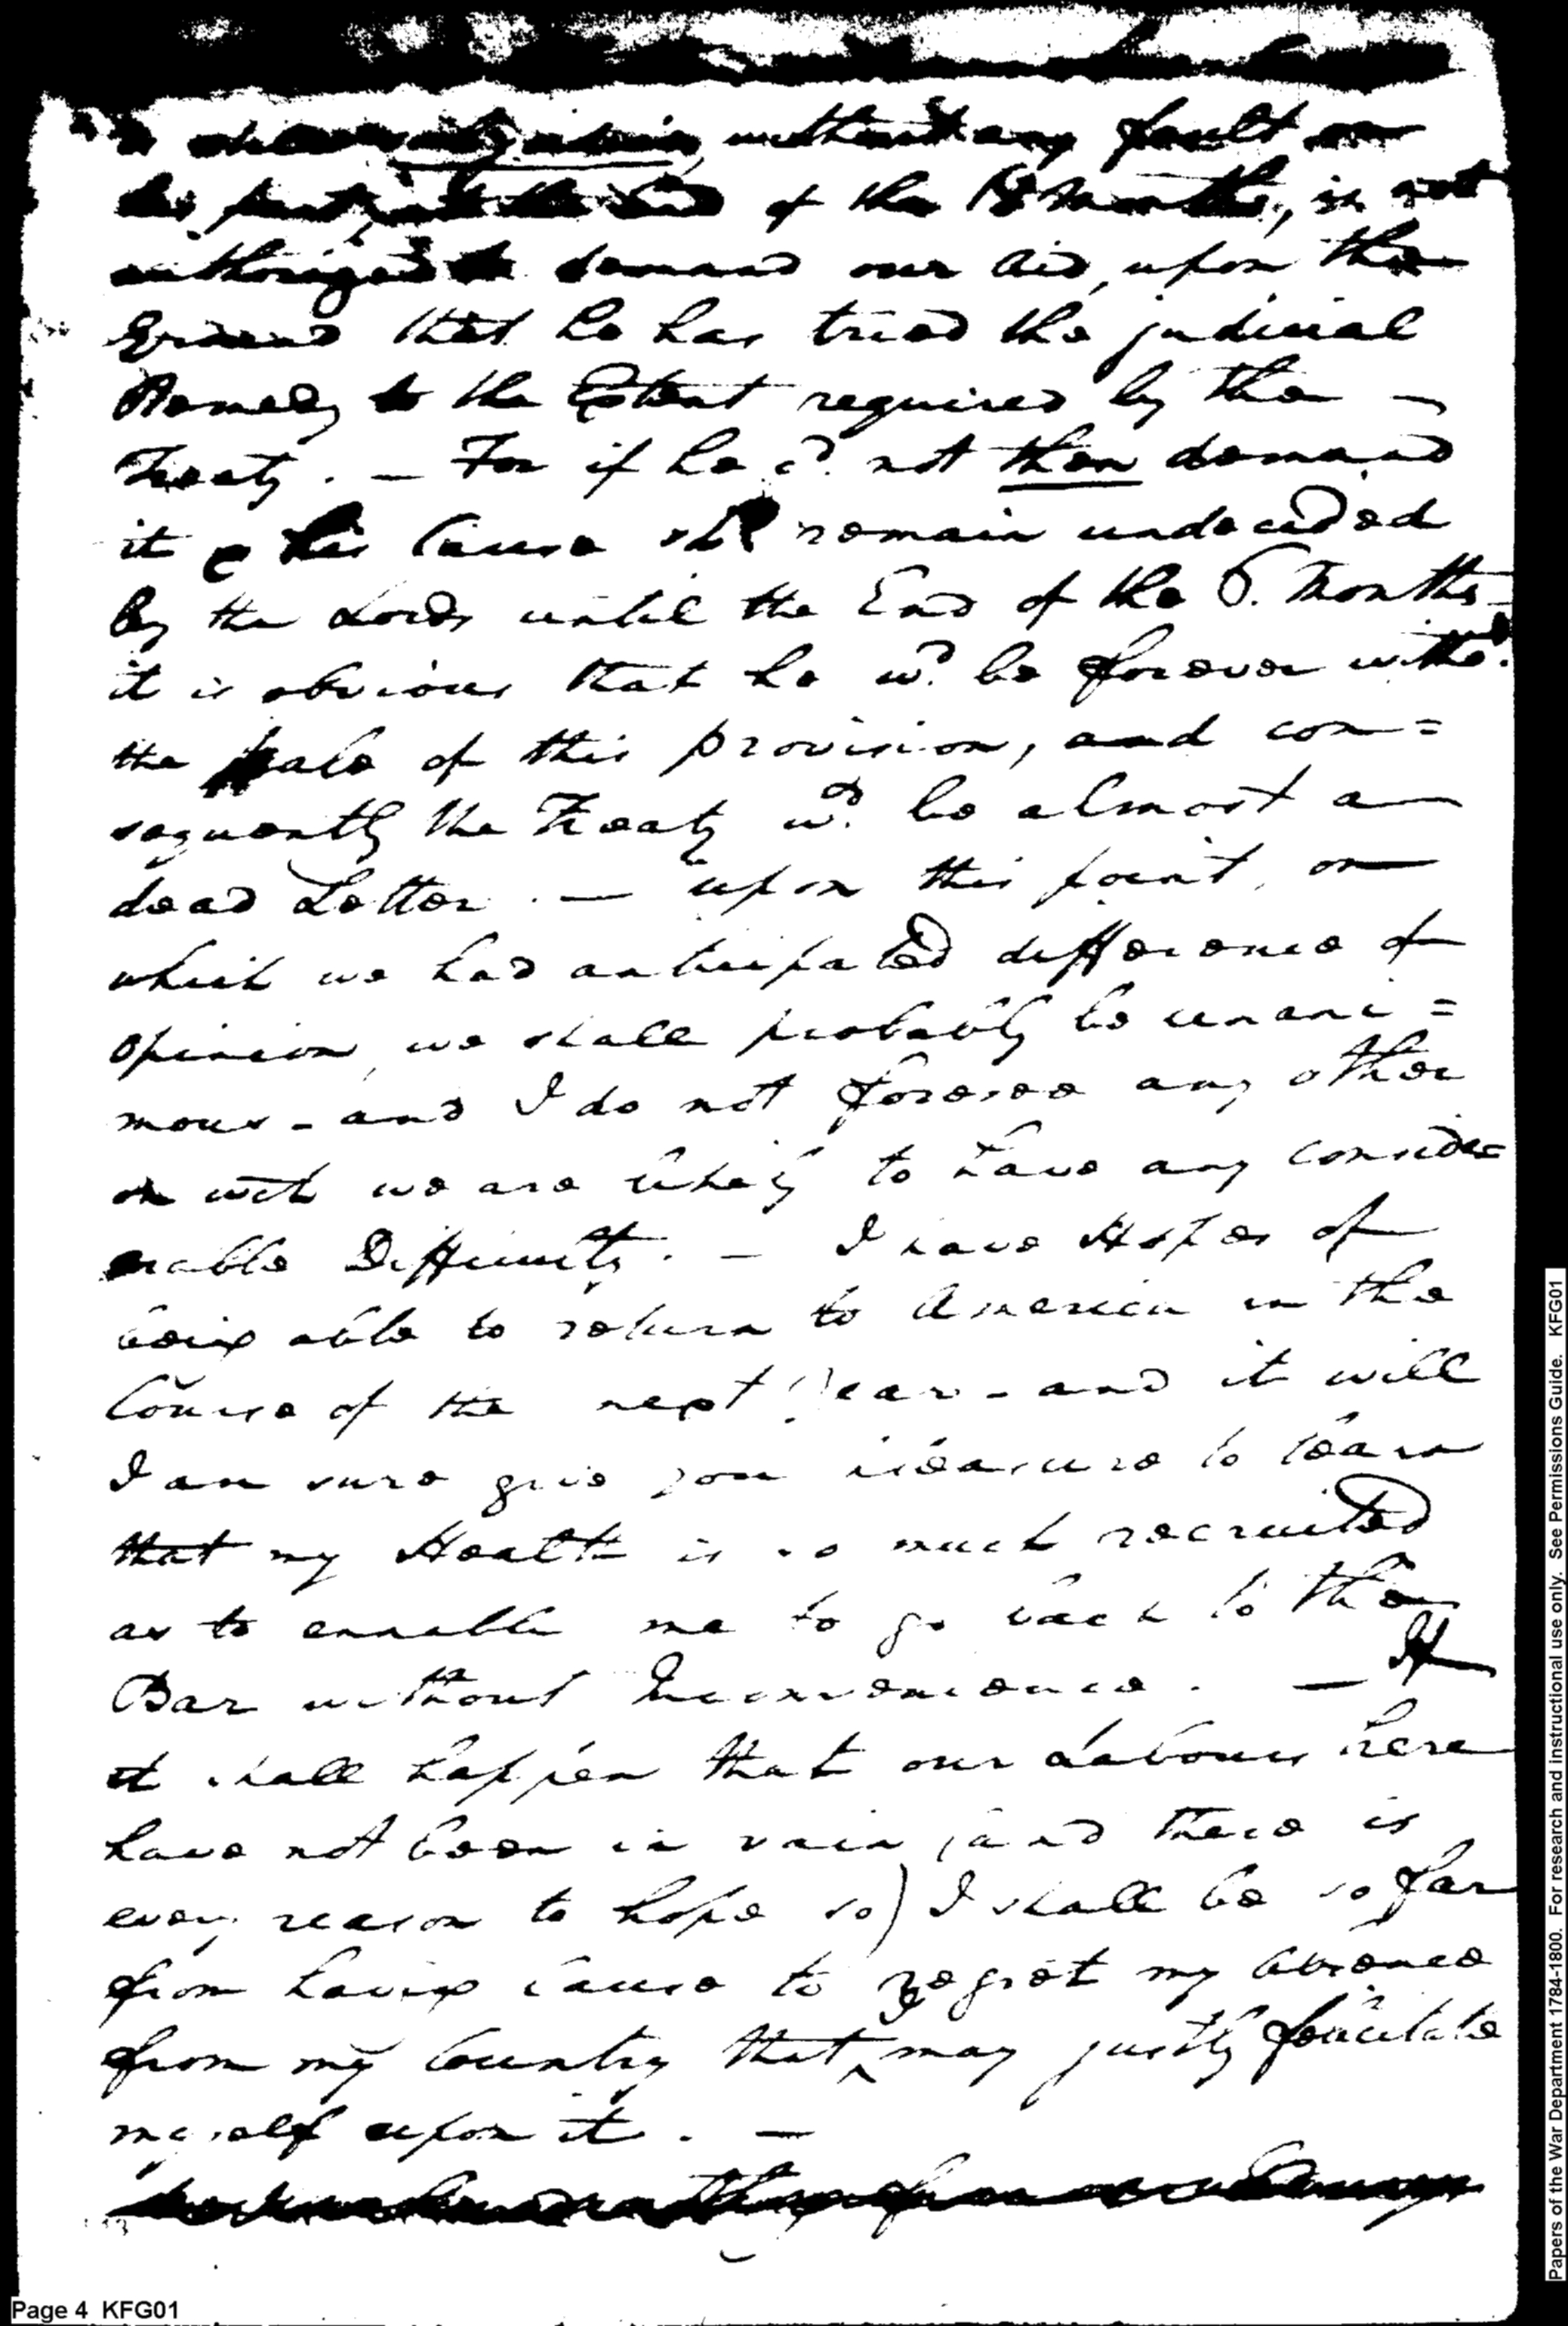 without any fault on
his part, at the End of the 18 Months, is not
authorized to demand our aid, upon the
Ground that he has tried the judicial
Remedy to the Extent required by the —
Treaty. — For if he cd. not then demand
it & his Cause shd. remain undecided
by the Lords until the End of the 6. Months —
it is obvious that he wd. be forever witht.
the pale of this provision, and con=
sequently the Treaty wd. be almost a
dead Letter. — upon this point, on
which we had anticipated difference of
opinion, we shall probably be unani=
mous - and I do not foresee any other
on wch we are likely to have any consid=
erable Difficulty. — I have Hopes of
being able to return to America in the
Course of the next Year - and it will
I am sure give you pleasure to learn
that my Health is so much recruited
as to ennable me to go back to the
Bar without Inconvenience. — If
it shall happen that our Labours here
have not been in vain (and there is
every reason to hope so) I shall be so far
from having cause to regret my absence
from my Country that ^I may justly felicitate
myself upon it. —
Page 4 KFG01
Papers of the War Department 1784-1800. For research and instructional use only. See Permissions Guide. KFG01